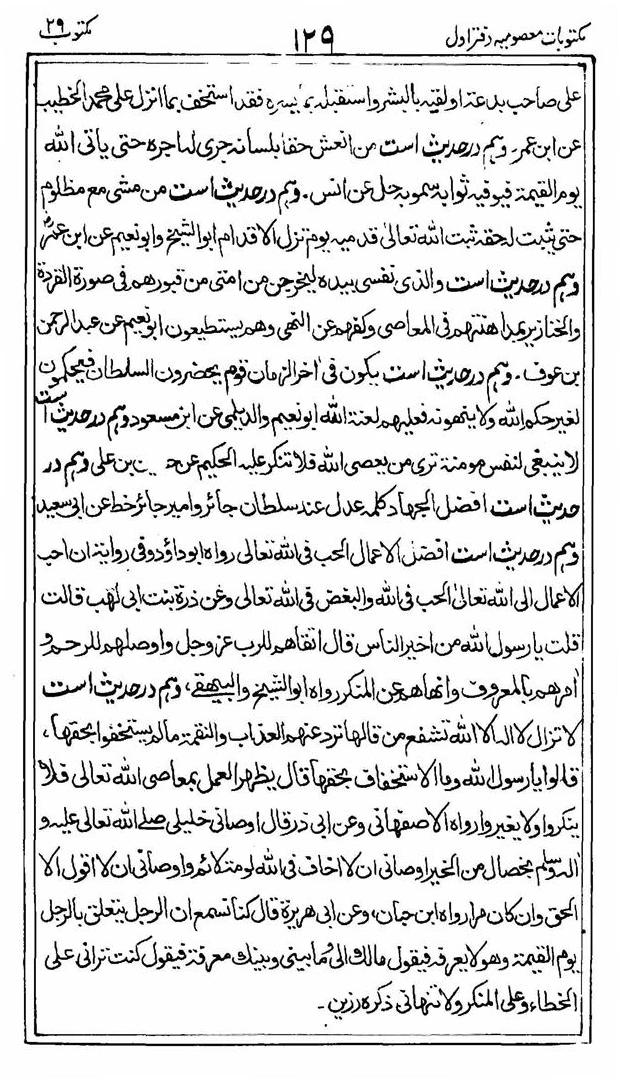 مکتوبات معصومیہ دفتر اول
۱۲۹
مکتوب ۲۹
علی صاحب بدعۃ او لقیہ بالبشر واستقبلہ بما یسرہ فقد استخف بما انزل علی محمد الخطیب
عن ابن عمر۔ وہم در حدیث است من انعش حقا بلسانہ جری لہ اجرہ حتی یاتی اللہ
یوم القیمۃ فیوفیہ ثوابہ سمویہ حل عن انس۔ وہم در حدیث است من مشی مع مظلوم
حتی یثبت لہ حقہ ثبت اللہ تعالیٰ قدمیہ یوم تزل الاقدام ابو الشیخ وابو نعیم عن ابن عمرؓ
وہم در حدیث است والذی نفسی بیدہ لیخرجن من امتی من قبورہم فی صورۃ القردۃ
والخنازیر بمداھنتہم فی المعاصی وکفہم عن النھی وھم یستطیعون ابو نعیم عن عبد الرحمن
بن عوف۔ وہم در حدیث است یکون فی اخر الزمان قوم یحضرون السلطان فیحکمون
لغیر حکم اللہ ولا ینھونہ فعلیہم لعنۃ اللہ ابو نعیم والدیلمی عن ابن مسعود وہم در حدیث است
لا ینبغی لنفس مومنۃ تری من یعصی اللہ فلا تنکر علیہ الحکیم عن بن علی وہم در
حدیث است افضل الجھاد کلمۃ عدل عند سلطان جائر وامیر جائر خط عن ابی سعید
وہم در حدیث است افضل الاعمال الحب فی اللہ تعالی رواہ ابو داؤد وفی روایۃ ان احب
الاعمال الی اللہ تعالیٰ الحب فی اللہ والبغض فی اللہ تعالی وعن ذرۃ بنت ابی لھب قالت
قلت یا رسول اللہ من اخیر الناس قال اتقاھم للرب عز وجل واوصلھم للرحم و
امرھم بالمعروف وانھاھم عن المنکر رواہ ابو الشیخ والبیھقی، وہم در حدیث است
لا تزال لا الہ الا اللہ تشفع من قالھا تزد عنھم العذاب والنقمۃ ما لم یستخفوا بحقھا،
قالوا یا رسول اللہ وما الاستخفاف بحقھا قال یظھر العمل بمعاصی اللہ تعالی فلا
ینکروا ولا یغیروا رواہ الاصفھانی وعن ابی ذر قال اوصانی خلیلی صلے اللہ تعالی علیہ و
الہ وسلم بخصال من الخیر اوصانی ان لا اخاف فی اللہ لومۃ لائم واوصانی ان لا اقول الا
الحق وان کان مرا رواہ ابن حبان، وعن ابی ھریرۃ قال کنا نسمع ان الرجل یتعلق بالرجل
یوم القیمۃ وھو لا یعرفہ فیقول مالک الی وما بینی وبینک معرفۃ فیقول کنت ترانی علی
الخطاء وعلی المنکر ولا تنھانی ذکرہ رزین۔